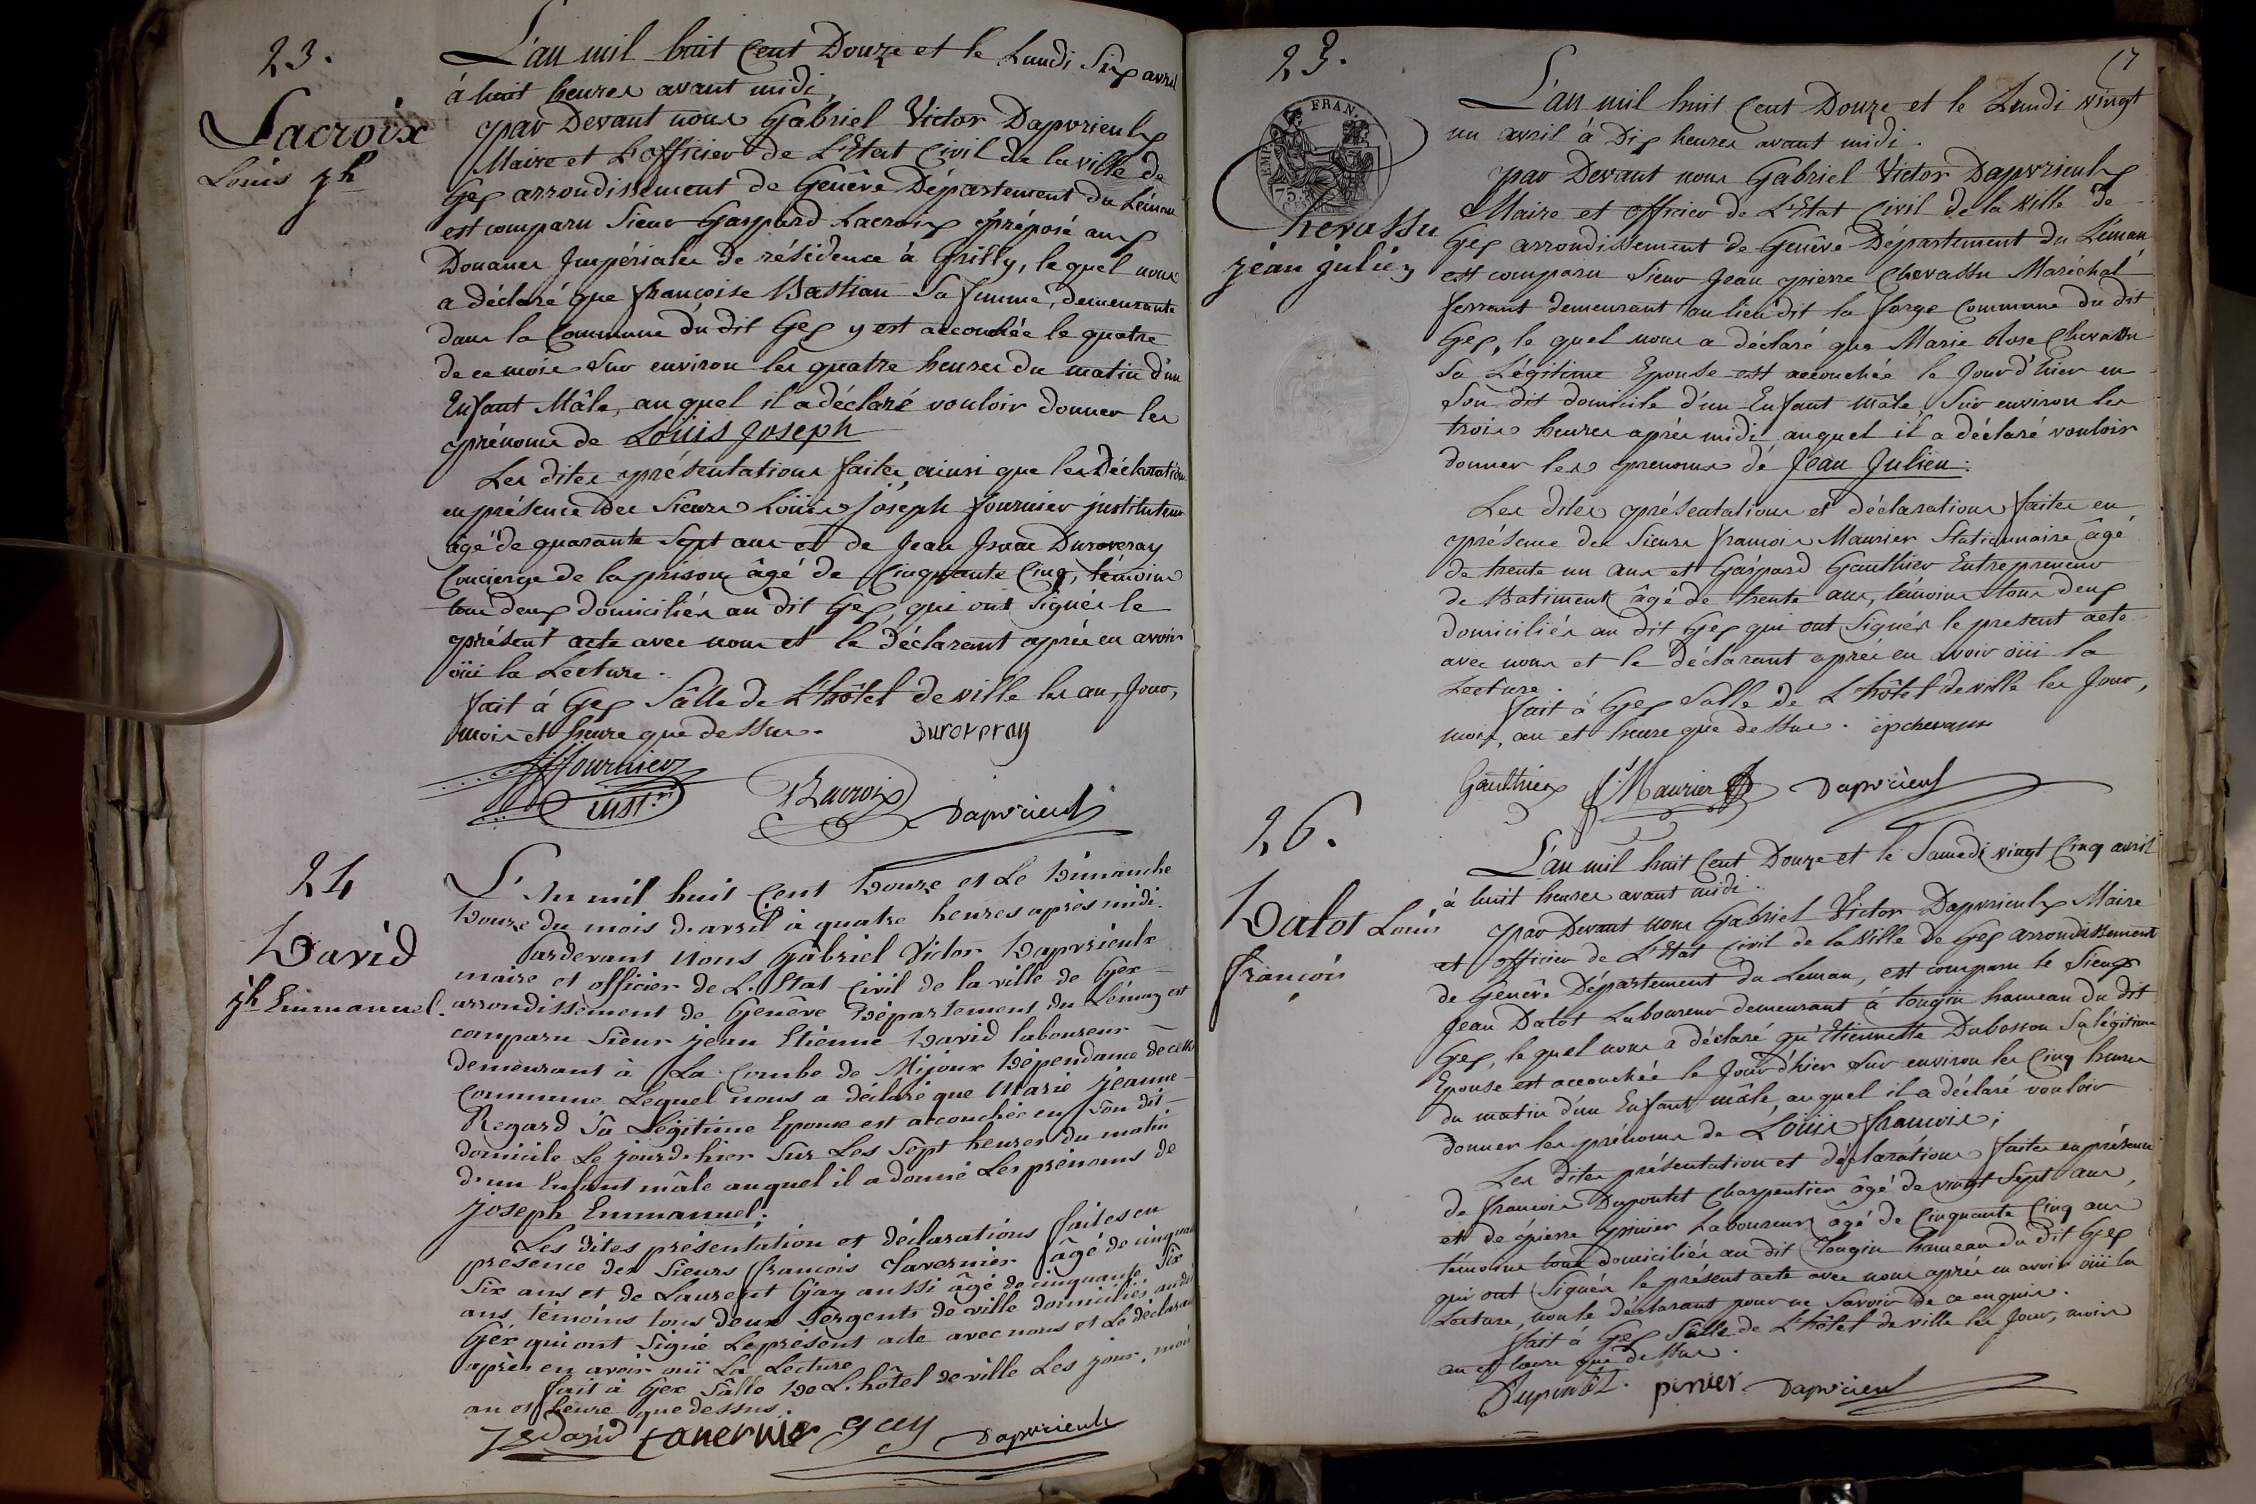 23.
Lacroix
Louis jh
L'an mil huit Cent Douze et le Lundi Six avril
à huit heures avant midi,
par Devant nous Gabriel Victor Dapvrieulx
Maire et L'officier de L'Etat Civil de la ville de
Gex arrondissement de Genêve Département du Léman
est comparu Sieur Gaspard Lacroix préposé aux
Douanes Impériales de résidence à Grilly, lequel nous
a déclaré que françoise Bastian Sa femme, demeurante
dans la Commune du dit Gex y est accouchée le quatre
de ce mois Sur environ les quatre heures du matin d'un
Enfant Mâle, auquel il a déclaré vouloir donner les
prénoms de Loüis Joseph
Les dites présentations faites, ainsi que les Déclarations
en présence des Sieurs Loüis Joseph fournier instituteur
âgé de quarante Sept ans et de Jean Isaac Duroveray
Concierge de la prison âgé de Cinquante Cinq, témoins
tous deux domiciliés au dit Gex qui ont Signés le
présent acte avec nous et le Déclarant après en avoir
oüi la Lecture.
fait à Gex Sâlle de L'hôtel de ville les an, Jour,
mois et heure que dessus. Duroveray
fournier
inst.r Lacroix Dapvrieulx
24
David
jh Emmanuel.
L'An mil huit Cent Douze et Le Dimanche
Douze du mois d'avril à quatre heures après midi.
Pardevant Nous Gabriel Victor Dapvrieulx
maire et officier de L'Etat Civil de la ville de Gex
arrondissement de Genêve Département du Léman est
comparu Sieur jean Etienne David laboureur
demeurant à La Combe de Mijoux Dépendance de cette
Commune Lequel nous a déclaré que Marie jeanne
Regard Sa Légitime Epouse est accouchée en Son dit
domicile Le jour d'hier Sur Les Sept heures du matin
d'un Enfant mâle auquel il a donné Les prénoms de
joseph Emmanuel;
Les dites présentation et déclarations faites en
présence des Sieurs françois Tavernier âgé de cinquante
Six ans et de Laurent Gay aussi âgé de cinquante Six
ans témoins tous deux Sergents de ville domiciliés au dit
Gex qui ont Signé Le présent acte avec nous et Le déclarant
après en avoir ouï La Lecture
fait à Gex Sâlle De L'hôtel de ville Les jour, mois
an et heure que dessus.
David tavernier gay Dapvrieulx
17
23.
EMP. FRAN.
Chevassu
jean julien
L'an mil huit Cent Douze et le Lundi vingt
un avril à Dix heures avant midi.
par Devant nous Gabriel Victor Dapvrieulx
Maire et officier de L'Etat Civil de la Ville de
Gex arrondissement de Genêve Département du Léman
est comparu Sieur Jean pierre Chevassu Maréchal
ferrant demeurant au lieu dit la forge Commune du dit
Gex, lequel nous a déclaré que Marie Rose Chevassu
Sa Légitime Epouse est accouchée le Jour d'hier en
Son dit domicile d'un Enfant mâle, Sur environ les
trois heures après midi auquel il a déclaré vouloir
donner les prenoms de Jean Julien.
Les dites présentations et déclarations faites en
présence des Sieurs francois Maurier Stationnaire âgé
de trente un ans et Gáspard Gauthier Entrepreneur
de Batiment âgé de trente ans, témoins tous deux
domiciliés au dit Gex que ont Signés le present acte
avec nous et le Déclarant après en avoir oüi la
Lecture.
fait à Gex Salle de L'hôtel de ville les Jour,
mois, an et heure que dessus. jpchevassu
Gauthier Maurier Dapvrieulx
26.
Dalot Louis
françois
L'an mil huit Cent Douze et le Samedi vingt Cinq avril
à huit heures avant midi.
par Devant nous Gabriel Victor Dapvrieulx Maire
et officier de L'Etat Civil de la Ville de Gex arrondissement
de Genêve Département du Leman, est comparu le Sieur
Jean Dalot Laboureur demeurant à tougin hameau du dit
Gex, lequel nous a déclaré qu'Etiennette Dubosson Sa légitime
Epouse est accouchée le Jour d'hier Sur environ les Cinq heures
du matin d'un Enfant mâle auquel il a déclaré vouloir
donner les prénoms de Loüis françois;
Les dites présentation et déclarations faites en présence
de francois Dupontet Charpentier âgé de vingt Sept ans,
et de pierre prinier Laboureur âgé de Cinquante Cinq ans
témoins tous domiciliés au dit Tougin hameau du dit Gex
qui ont Signés le présent acte avec nous après en avoir oüi la
Lecture, non le déclarant pour ne Savoir de ce enquis.
fait à Gex Sâlle de L'hôtel de ville les Jour, mois
an et heure que dessus.
Dupontet. prinier Dapvrieulx